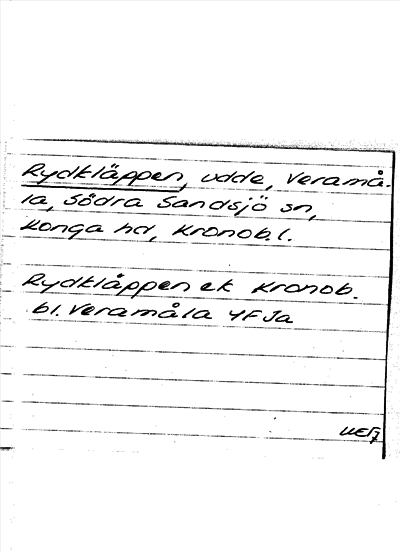 Rydkläppen, udde, Veramå-
la, Södra Sandsjö sn,
Konga hd, Kronob.l.
Rydkläppen ek Kronob.
bl. Veramåla 4FJa